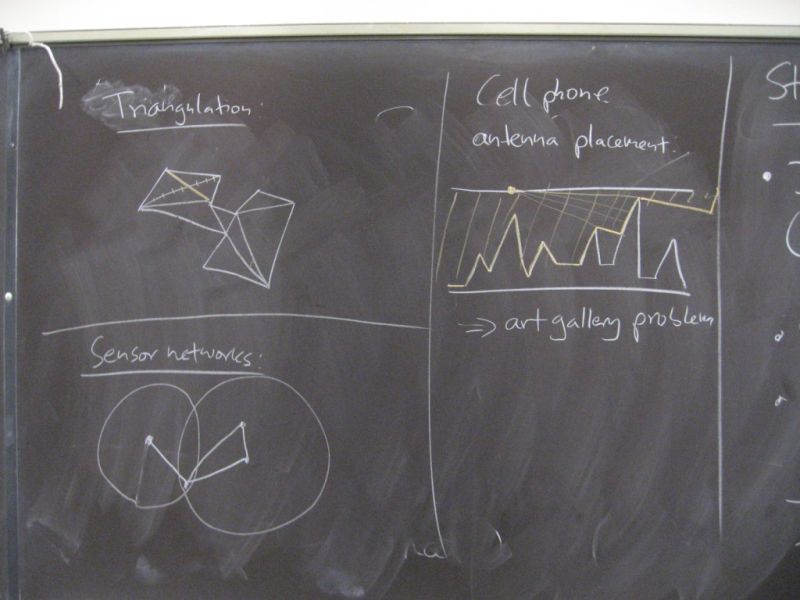 Triangulation:
Sensor networks:
Cell phone
antenna placement.
⇒ art gallery problem
St